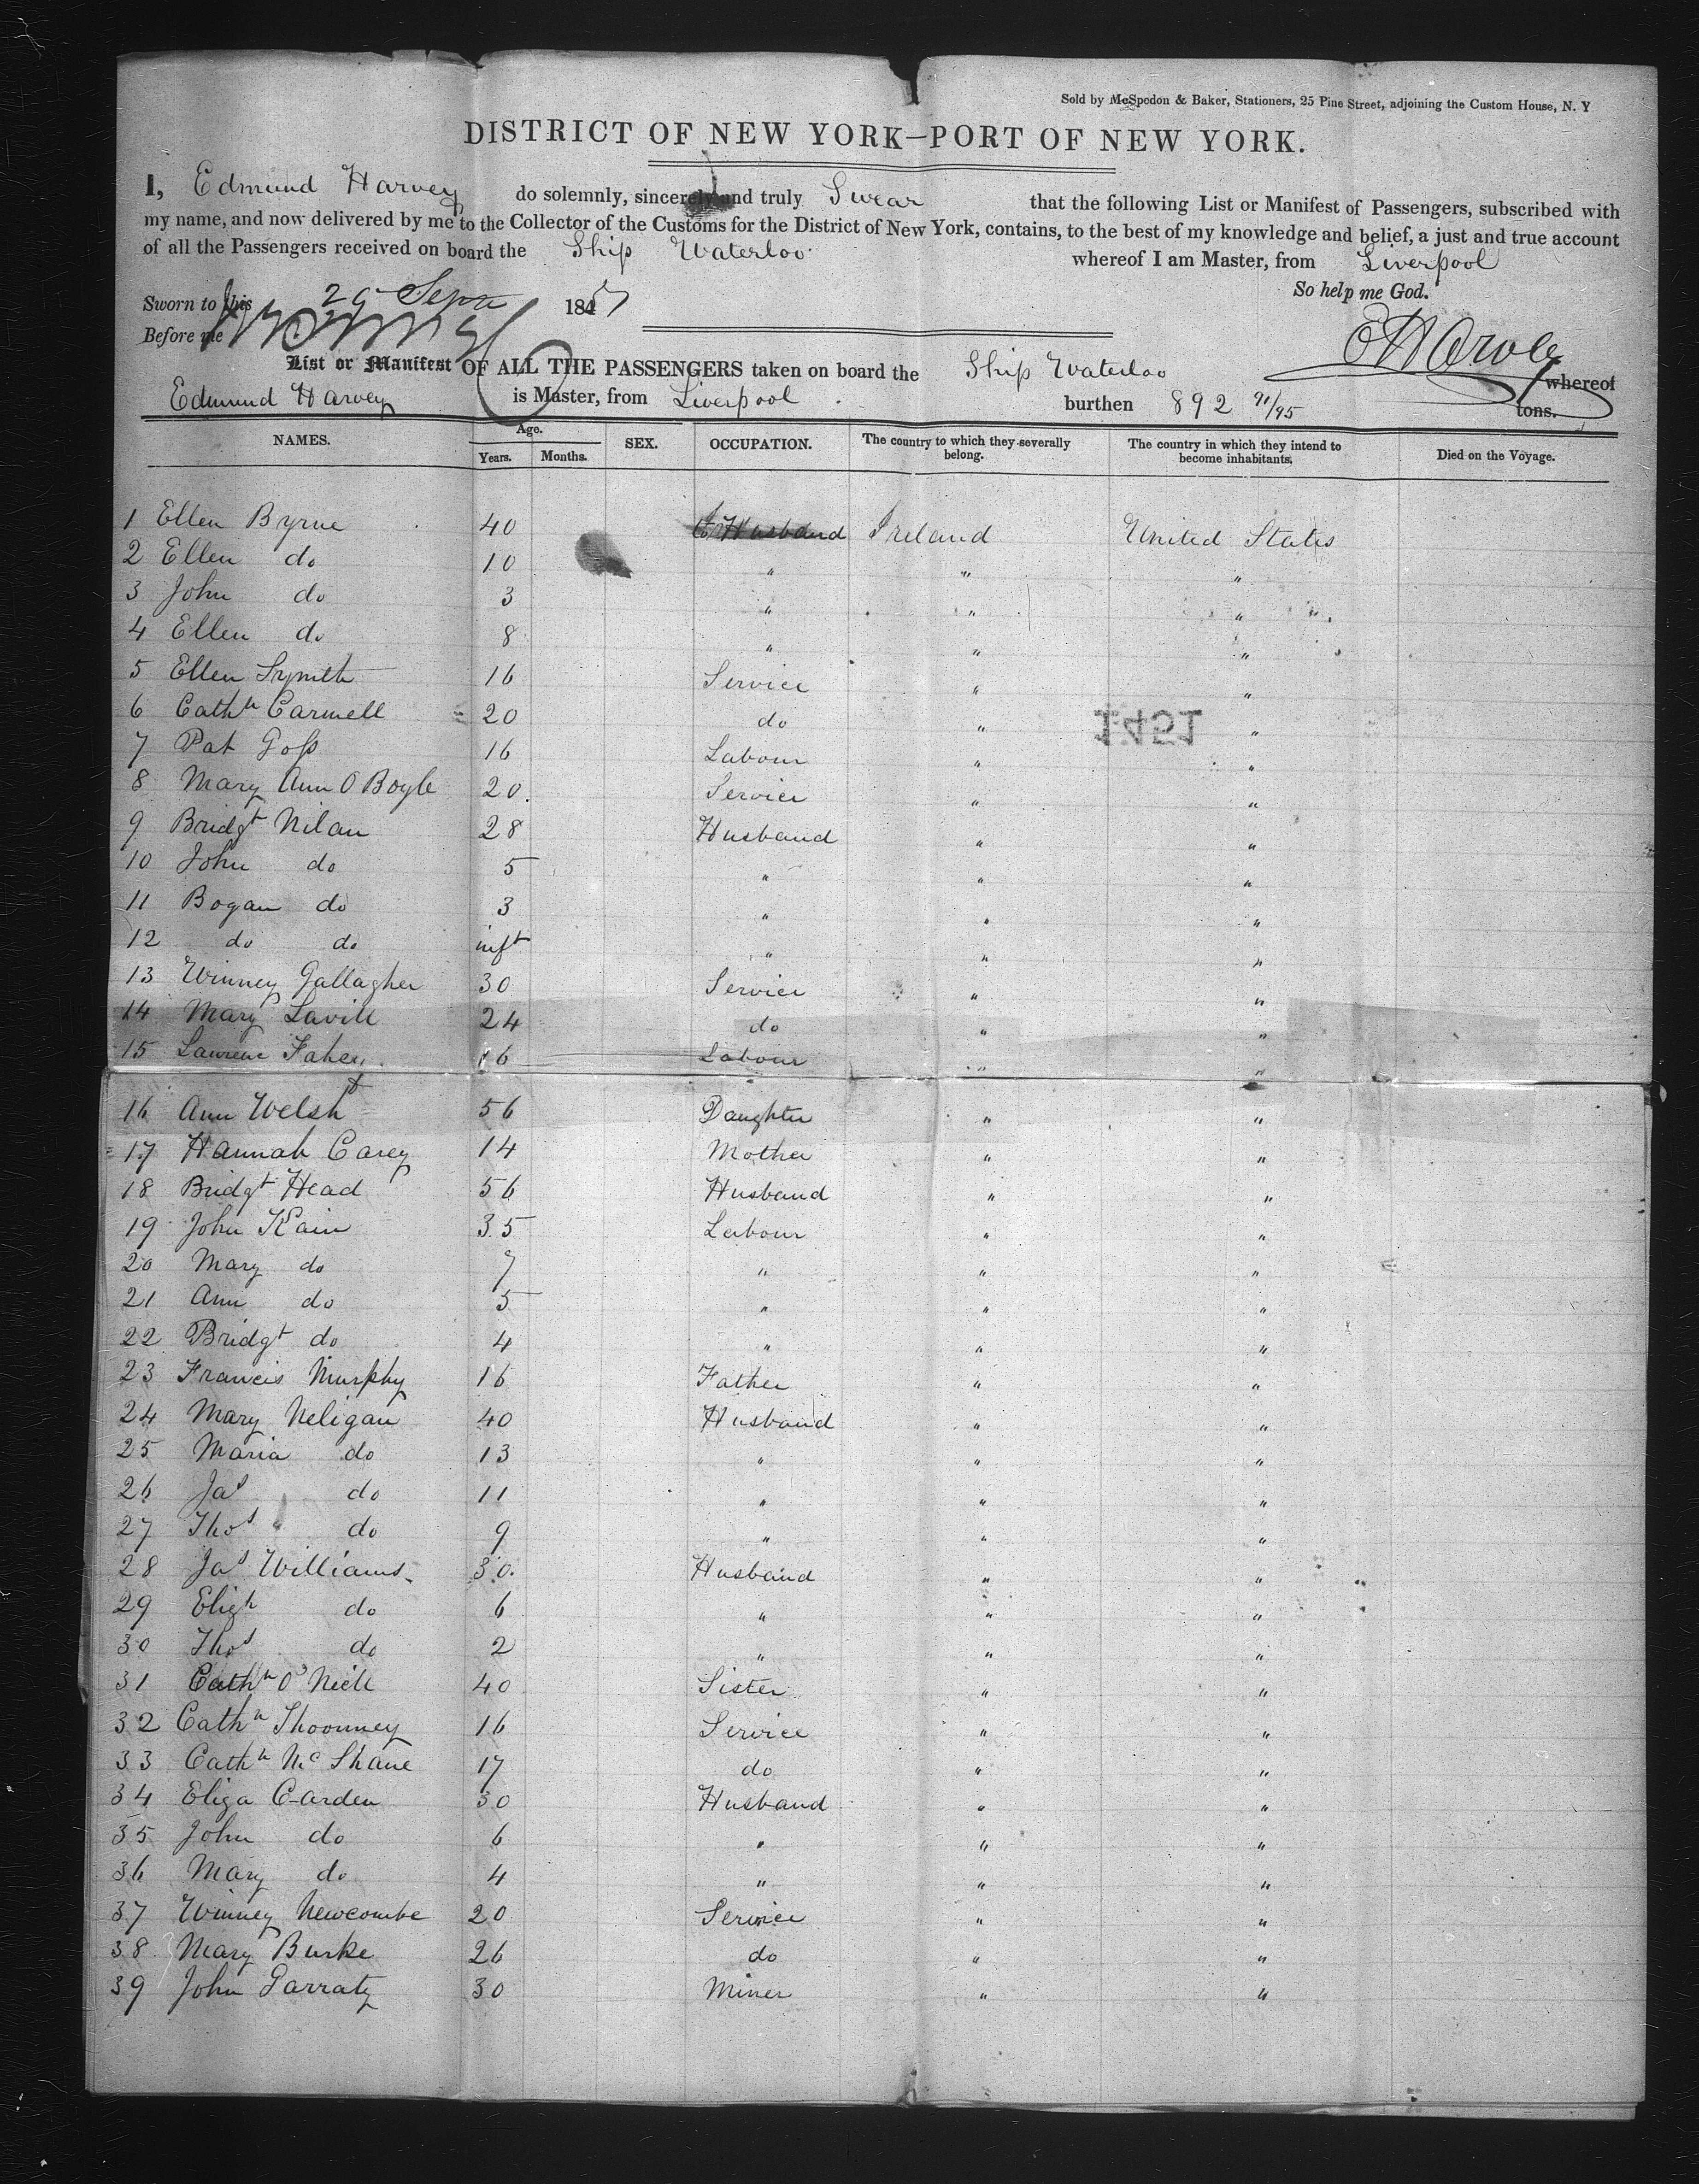 Sold by McSpedon & Baker, Stationers, 25 Pine Street, adjoining the Custom House, N. Y
DISTRICT OF NEW YORK—PORT OF NEW YORK.
I, Edmund Harvey do solemnly, sincerely and truly Swear that the following List or Manifest of Passengers, subscribed with
my name, and now delivered by me to the Collector of the Customs for the District of New York, contains, to the best of my knowledge and belief, a just and true account
of all the Passengers received on board the Ship Waterloo whereof I am Master, from Liverpool
So help me God.
Sworn to this 29 Sepr 1847
Before me
E Harvey
List or Manifest OF ALL THE PASSENGERS taken on board the Ship Waterloo whereof
Edmund Harvey is Master, from Liverpool burthen 892 91/95 tons.
NAMES. Age. Years. Months. SEX. OCCUPATION. The country to which they severally belong. The country in which they intend to become inhabitants. Died on the Voyage.
1 Ellen Byrne 40 to Husband Ireland United States
2 Ellen do 10 " " "
3 John do 3 " " " "
4 Ellen do 8 " " "
5 Ellen Smyith 16 Service " "
6 Cathn Carmell 20 do " "
1451
7 Pat Goss 16 Labour " "
8 Mary Ann O Boyle 20 Service " "
9 Bridgt Nilan 28 Husband " "
10 John do 5 " " "
11 Bogan do 3 " " "
12 do do inft " " "
13 Winney Gallagher 30 Service " "
14 Mary Lavill 24 do " "
15 Lawrence Fahey 16 Labour " "
16 Ann Welsh 56 Daughter " "
17 Hannah Carey 14 Mother " "
18 Bridgt Head 56 Husband " "
19 John Kain 35 Labour " "
20 Mary do 7 " " "
21 Ann do 5 " " "
22 Bridgt do 4 " " "
23 Francis Murphy 16 Father " "
24 Mary Neligan 40 Husband " "
25 Maria do 13 " " "
26 Jas do 11 " " "
27 Thos do 9 " " "
28 Jas Williams 30 Husband " "
29 Elizh do 6 " " "
30 Thos do 2 " " "
31 Cathn O'Neill 40 Sister " "
32 Cathn Thoonney 16 Service " "
33 Cathn McShane 17 do " "
34 Eliza Carden 30 Husband " "
35 John do 6 " " "
36 Mary do 4 " " "
37 Winney Newcombe 20 Service " "
38 Mary Burke 26 do " "
39 John Garraty 30 Miner " "